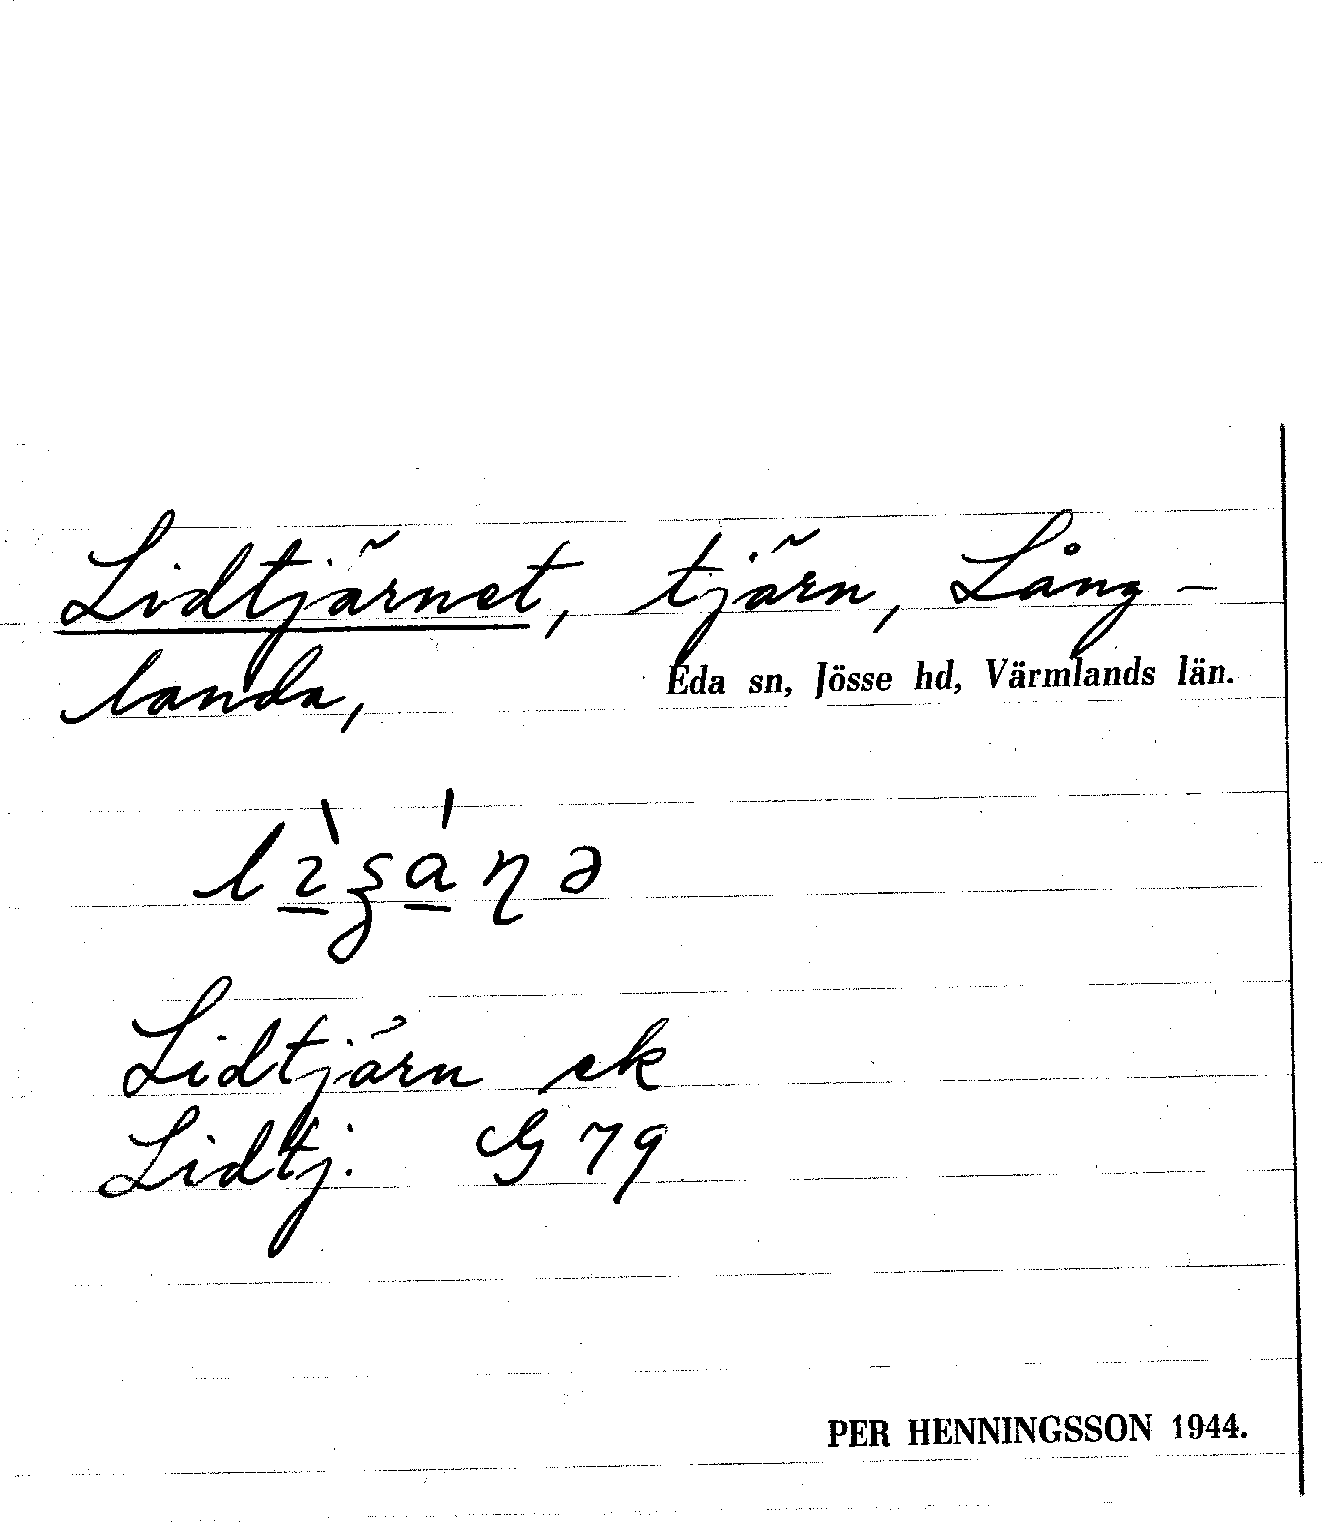 Lidtjärnet, tjärn, Lång-
landa,
Eda sn, Jösse hd, Värmlands län.
Lidtjärn ek
Lidtj. G 79
PER HENNINGSSON 1944.